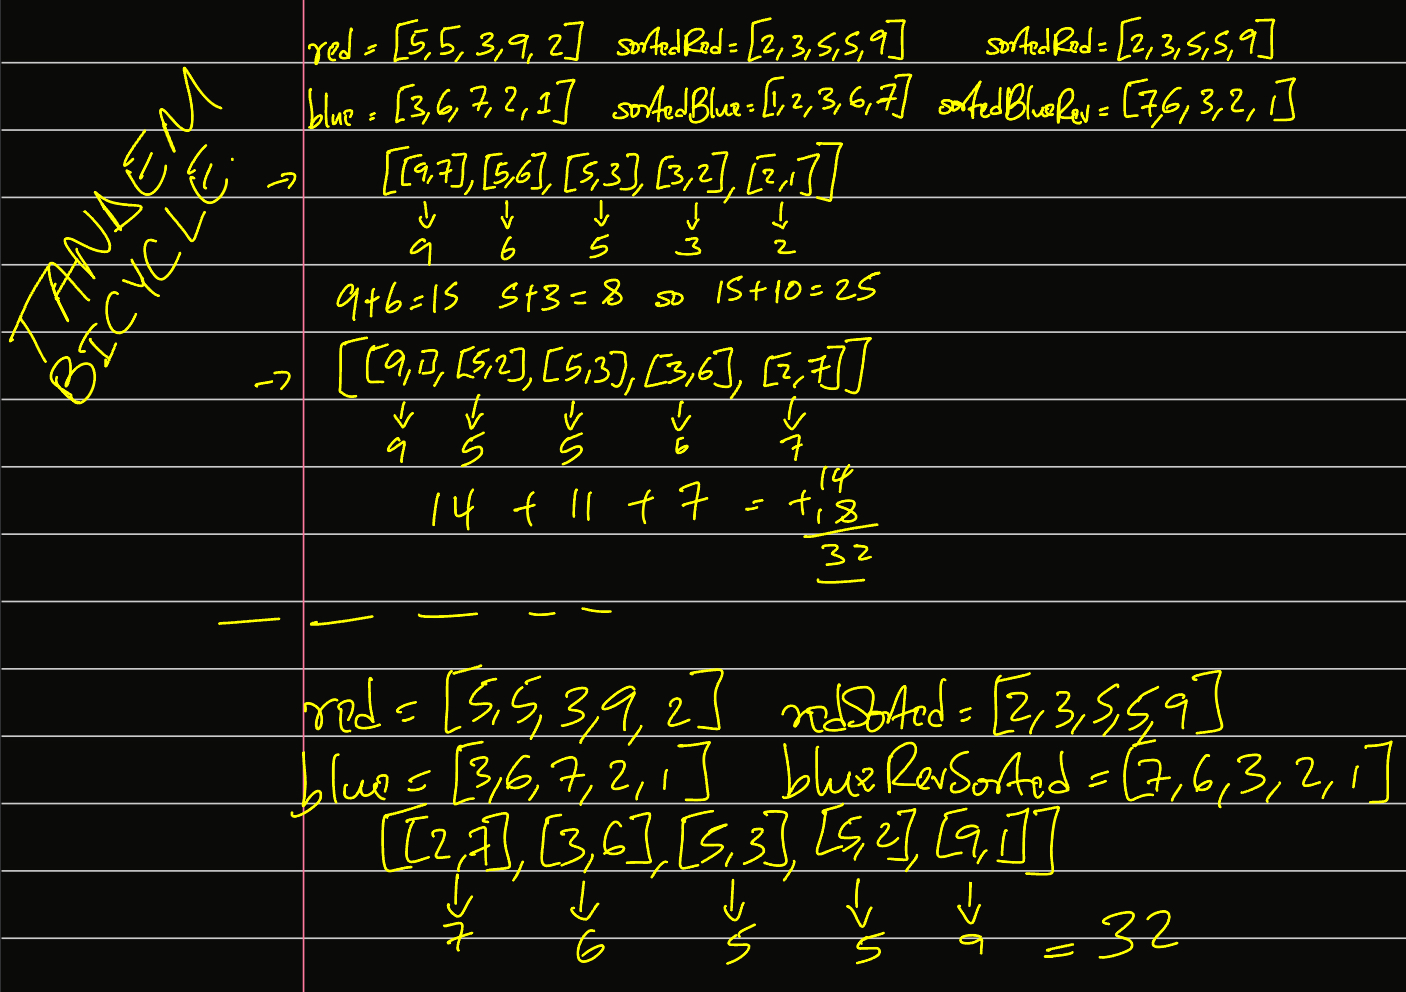 TANDEM
BICYCLE
red = [5,5, 3,9, 2] sortedRed = [2,3,5,5,9] sortedRed = [2,3,5,5,9]
blue = [3,6,7,2,1] sortedBlue = [1,2,3,6,7] sortedBlueRev = [7,6,3,2,1]
→ [[9,7],[5,6],[5,3],[3,2],[2,1]]
↓ ↓ ↓ ↓ ↓
9 6 5 3 2
9+6=15 5+3=8 so 15+10=25
→ [[9,1],[5,2],[5,3],[3,6],[2,7]]
↓ ↓ ↓ ↓ ↓
9 5 5 6 7
14
14 + 11 + 7 = +18
32
red = [5,5,3,9,2] redSorted = [2,3,5,5,9]
blue = [3,6,7,2,1] blueRevSorted = [7,6,3,2,1]
[[2,7],[3,6],[5,3],[5,2],[9,1]]
↓ ↓ ↓ ↓ ↓
7 6 5 5 9 = 32